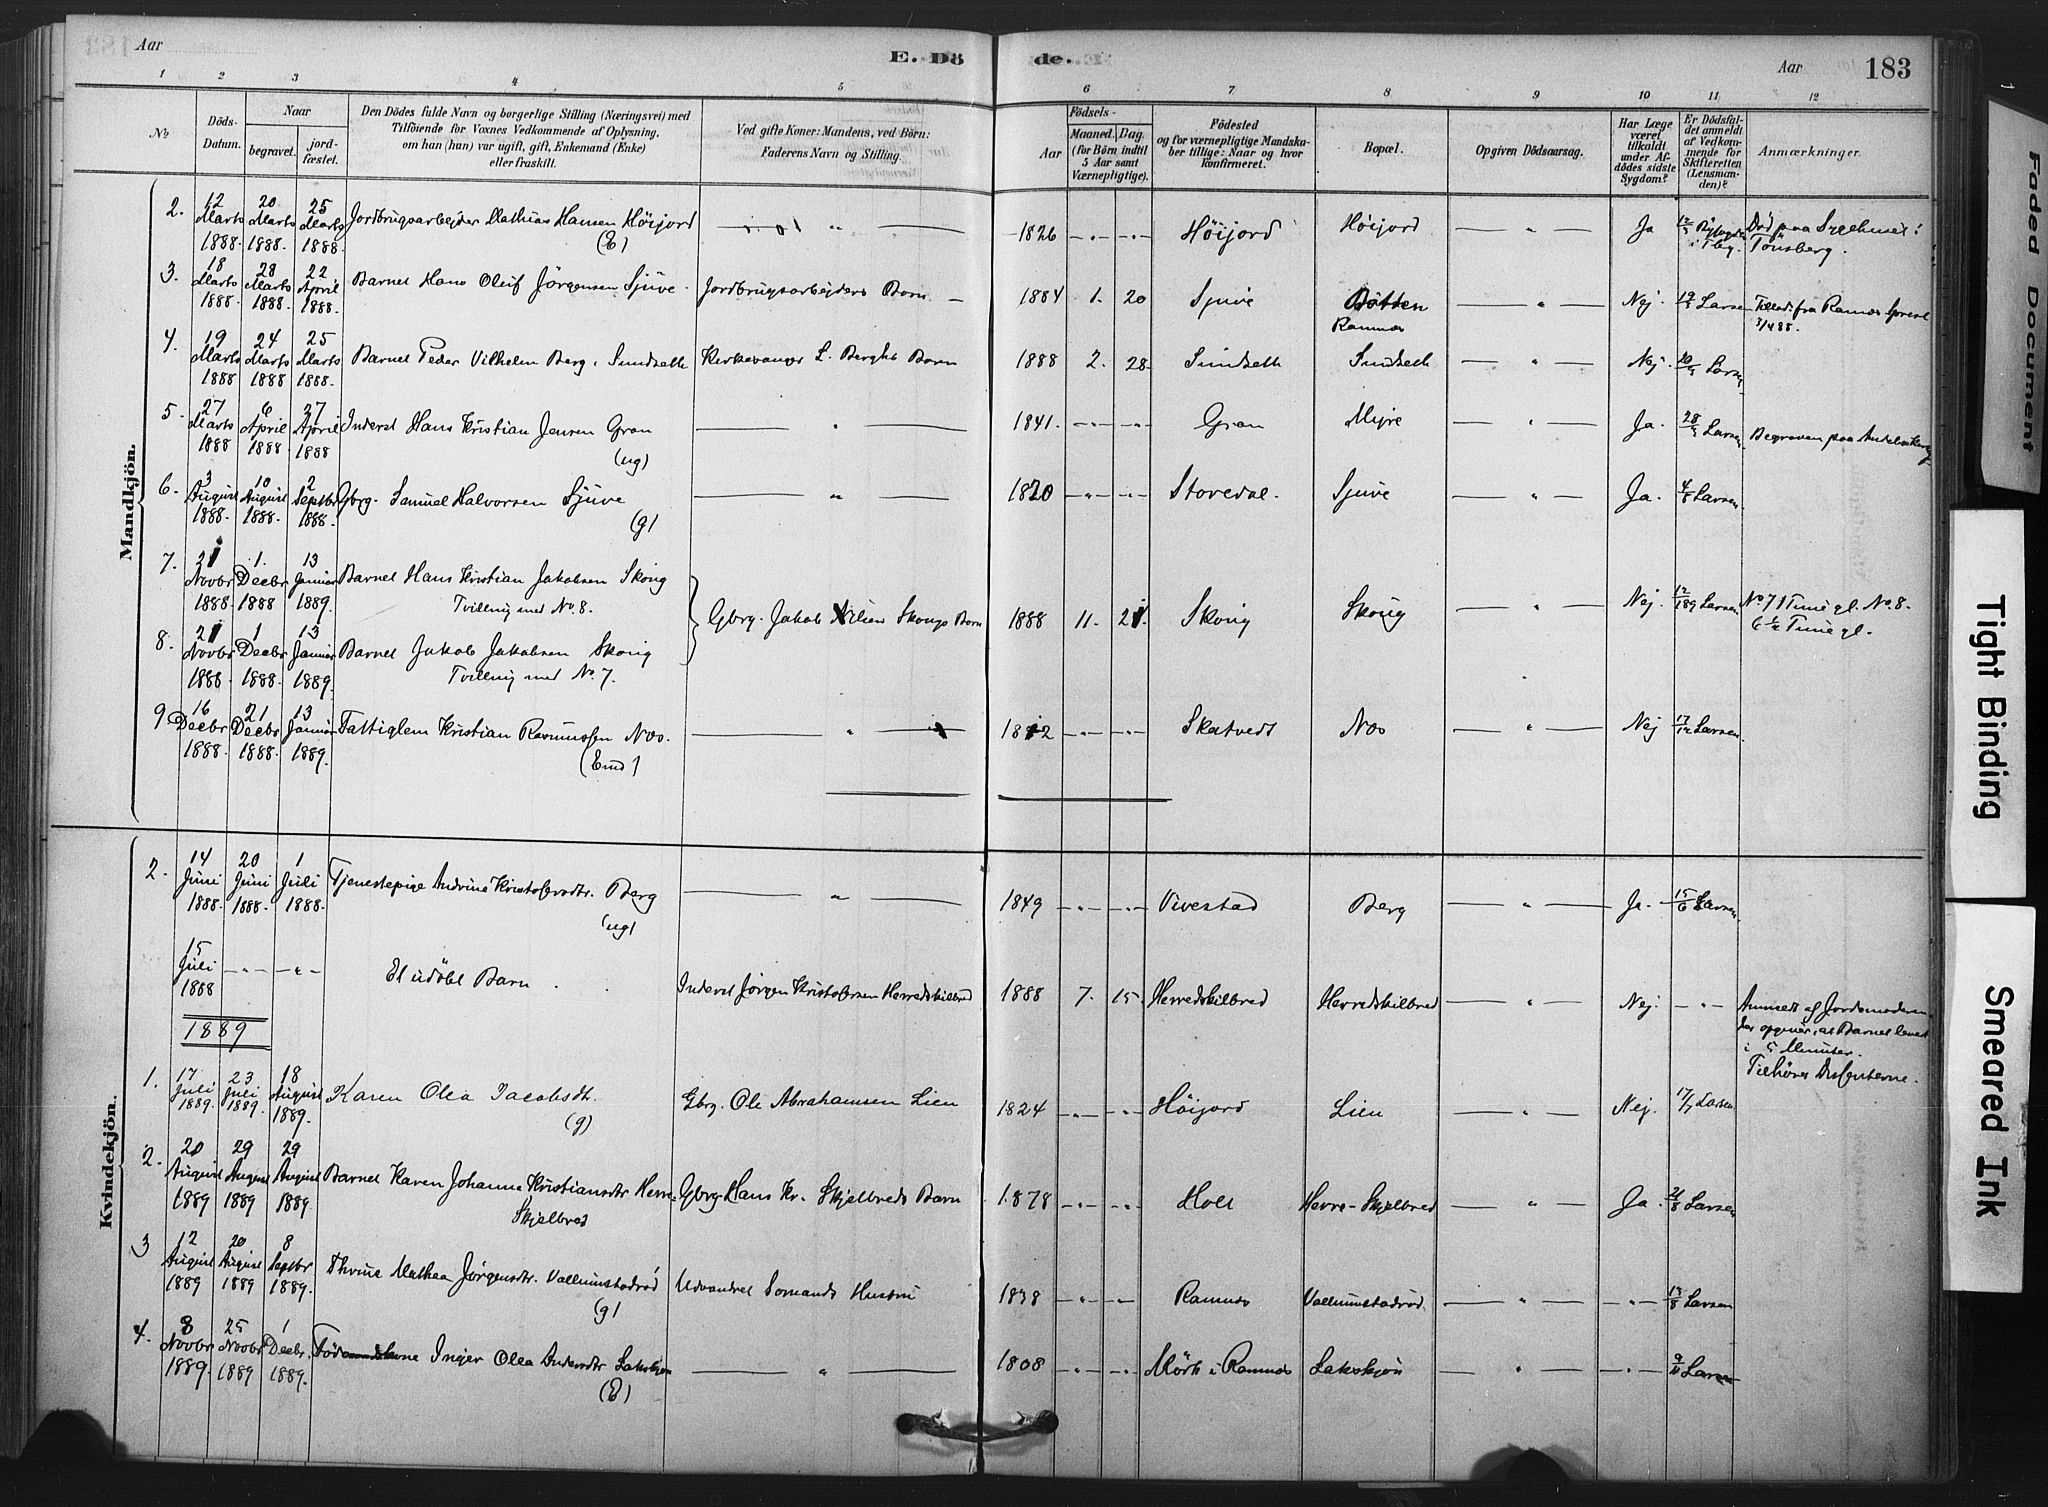 Aar
E. Dö
de.
Aar
183
1 2 3 4 5 6 7 8 9 10 11 12
No
Döds-
Datum.
Naar
begravet.
jord-
fæstet.
Den Dödes fulde Navn og borgerlige Stilling (Næringsvei) med
Tilföiende for Voxnes Vedkommende af Oplysning,
om han (hun) var ugift, gift, Enkemand (Enke)
eller fraskilt.
Ved gifte Koner: Mandens, ved Börn:
Faderens Navn og Stilling.
Födsels-
Aar
Maaned. Dag.
(for Börn indtil
5 Aar samt
Værnepligtige).
Födested
og for værnepligtige Mandska-
ber tillige: Naar og hvor
konfirmeret.
Bopæl.
Opgiven Dödsaarsag.
Har Læge
været
tilkaldt
under Af-
dödes sidste
Sygdom?
Er Dödsfal-
det anmeldt
af Vedkom-
mende for
Skifteretten
(Lensman-
den)?
Anmærkninger.
Mandkjön.
2. 12 Marts 1888. 20 Marts 1888. 25 Marts 1888. Jordbrugsarbejder Mathias Hansen Höijord (E) 1826 Höijord Höijord Ja 12/3 i Tbg. Död paa Sygehuset i Tönsberg.
3. 18 Marts 1888. 28 Marts 1888. 22 April 1888. Barnet Hans Oluf Jörgensen Sjuve. Jordbrugsarbejders Barn 1884 1. 20 Sjuve Bötten Ramnæs Nej. 19/3 Larsen fra Ramnæs
4. 19 Marts 1888 24 Marts 1888 25 Marts 1888. Barnet Peder Vilhelm Berg, Sundseth Kirkesanger L. Berghs Barn 1888 2. 28. Sundseth Sundseth Nej. 20/3 Larsen
5. 27 Marts 1888 6 April 1888. 27 April 1888 Inderst Hans Kristian Jensen Gran (ug) 1841. Gran Myre Ja. 28/3 Larsen Begraven paa
6. 3 August 1888. 10 August 1888. 2 Septbr 1888. Gbrg. Samuel Halvorsen Sjuve (g) 1820 Storedal. Sjuve Ja. 4/8 Larsen.
7. 21 Novbr 1888. 1. Decbr 1888 13 Januar 1889. Barnet Hans Kristian Jakobsen Skoug
Tvilling med No. 8.
Gbrg. Jakob Nilsen Skougs Barn 1888 11. 21. Skoug Skoug Nej. Larsen No. 7 1 Time gl. No. 8. 6 1/2 Time gl.
8. 21 Novbr 1888. 1 Decbr 1888. 13 Januar 1889. Barnet Jakob Jakobsen Skoug
Tvilling med No. 7.
9. 16 Decbr 1888. 21 Decbr 1888. 13 Januar 1889. Fattiglem Kristian Rasmussen Næs. (Emd) 1812 Skatvedt Næs Nej 17/12 Larsen.
Kvindekjön.
2. 14 Juni 1888. 20 Juni 1888. 1 Juli 1888. Tjenestepige Andrine Kristofersdtr. Berg (ug) 1849 Vivestad Berg Ja. 15/6 Larsen
15 Juli 1888 Et udöbt Barn Inderst Jörgen Kristofersen Herredskilbred 1888 7. 15. Herredskilbred Herredskilbred Nej. Anmeldt af Jordemoderen
der opgiver, at Barnet levet
i 5 Minuter.
Tilhörer Dissenterne.
1889
1. 17 Juli 1889. 23 Juli 1889. 18 August 1889. Karen Olea Jacobsdt. (g) Gbrg. Ole Abrahamsen Lien 1824 Höijord Lien Nej. 17/7 Larsen
2. 20 August 1889 29 August 1889 29 August 1889. Barnet Karen Johanne Kristiansdtr Herre-
Skjelbred
Gbrg. Hans Kr. Skjelbreds Barn 1878 Holt Herre-Skjelbred Ja. 21/8 Larsen
3 12 August 1889 20 August 1889 8 Septbr 1889. Thrine Mathea Jörgensdtr. Vallumstadröd (g) Udvandret Sömands Hustru 1838 Ramnæs Vallumstadröd 13/8 Larsen
4. 8 Novbr 1889. 25 Novbr 1889 1 Decbr. 1889. Inger Olea Andersdtr Lakskjön (E) 1808 Mörk i Ramnæs Lakskjön 9/11 Larsen
Faded Document
Tight Binding
Smeared Ink